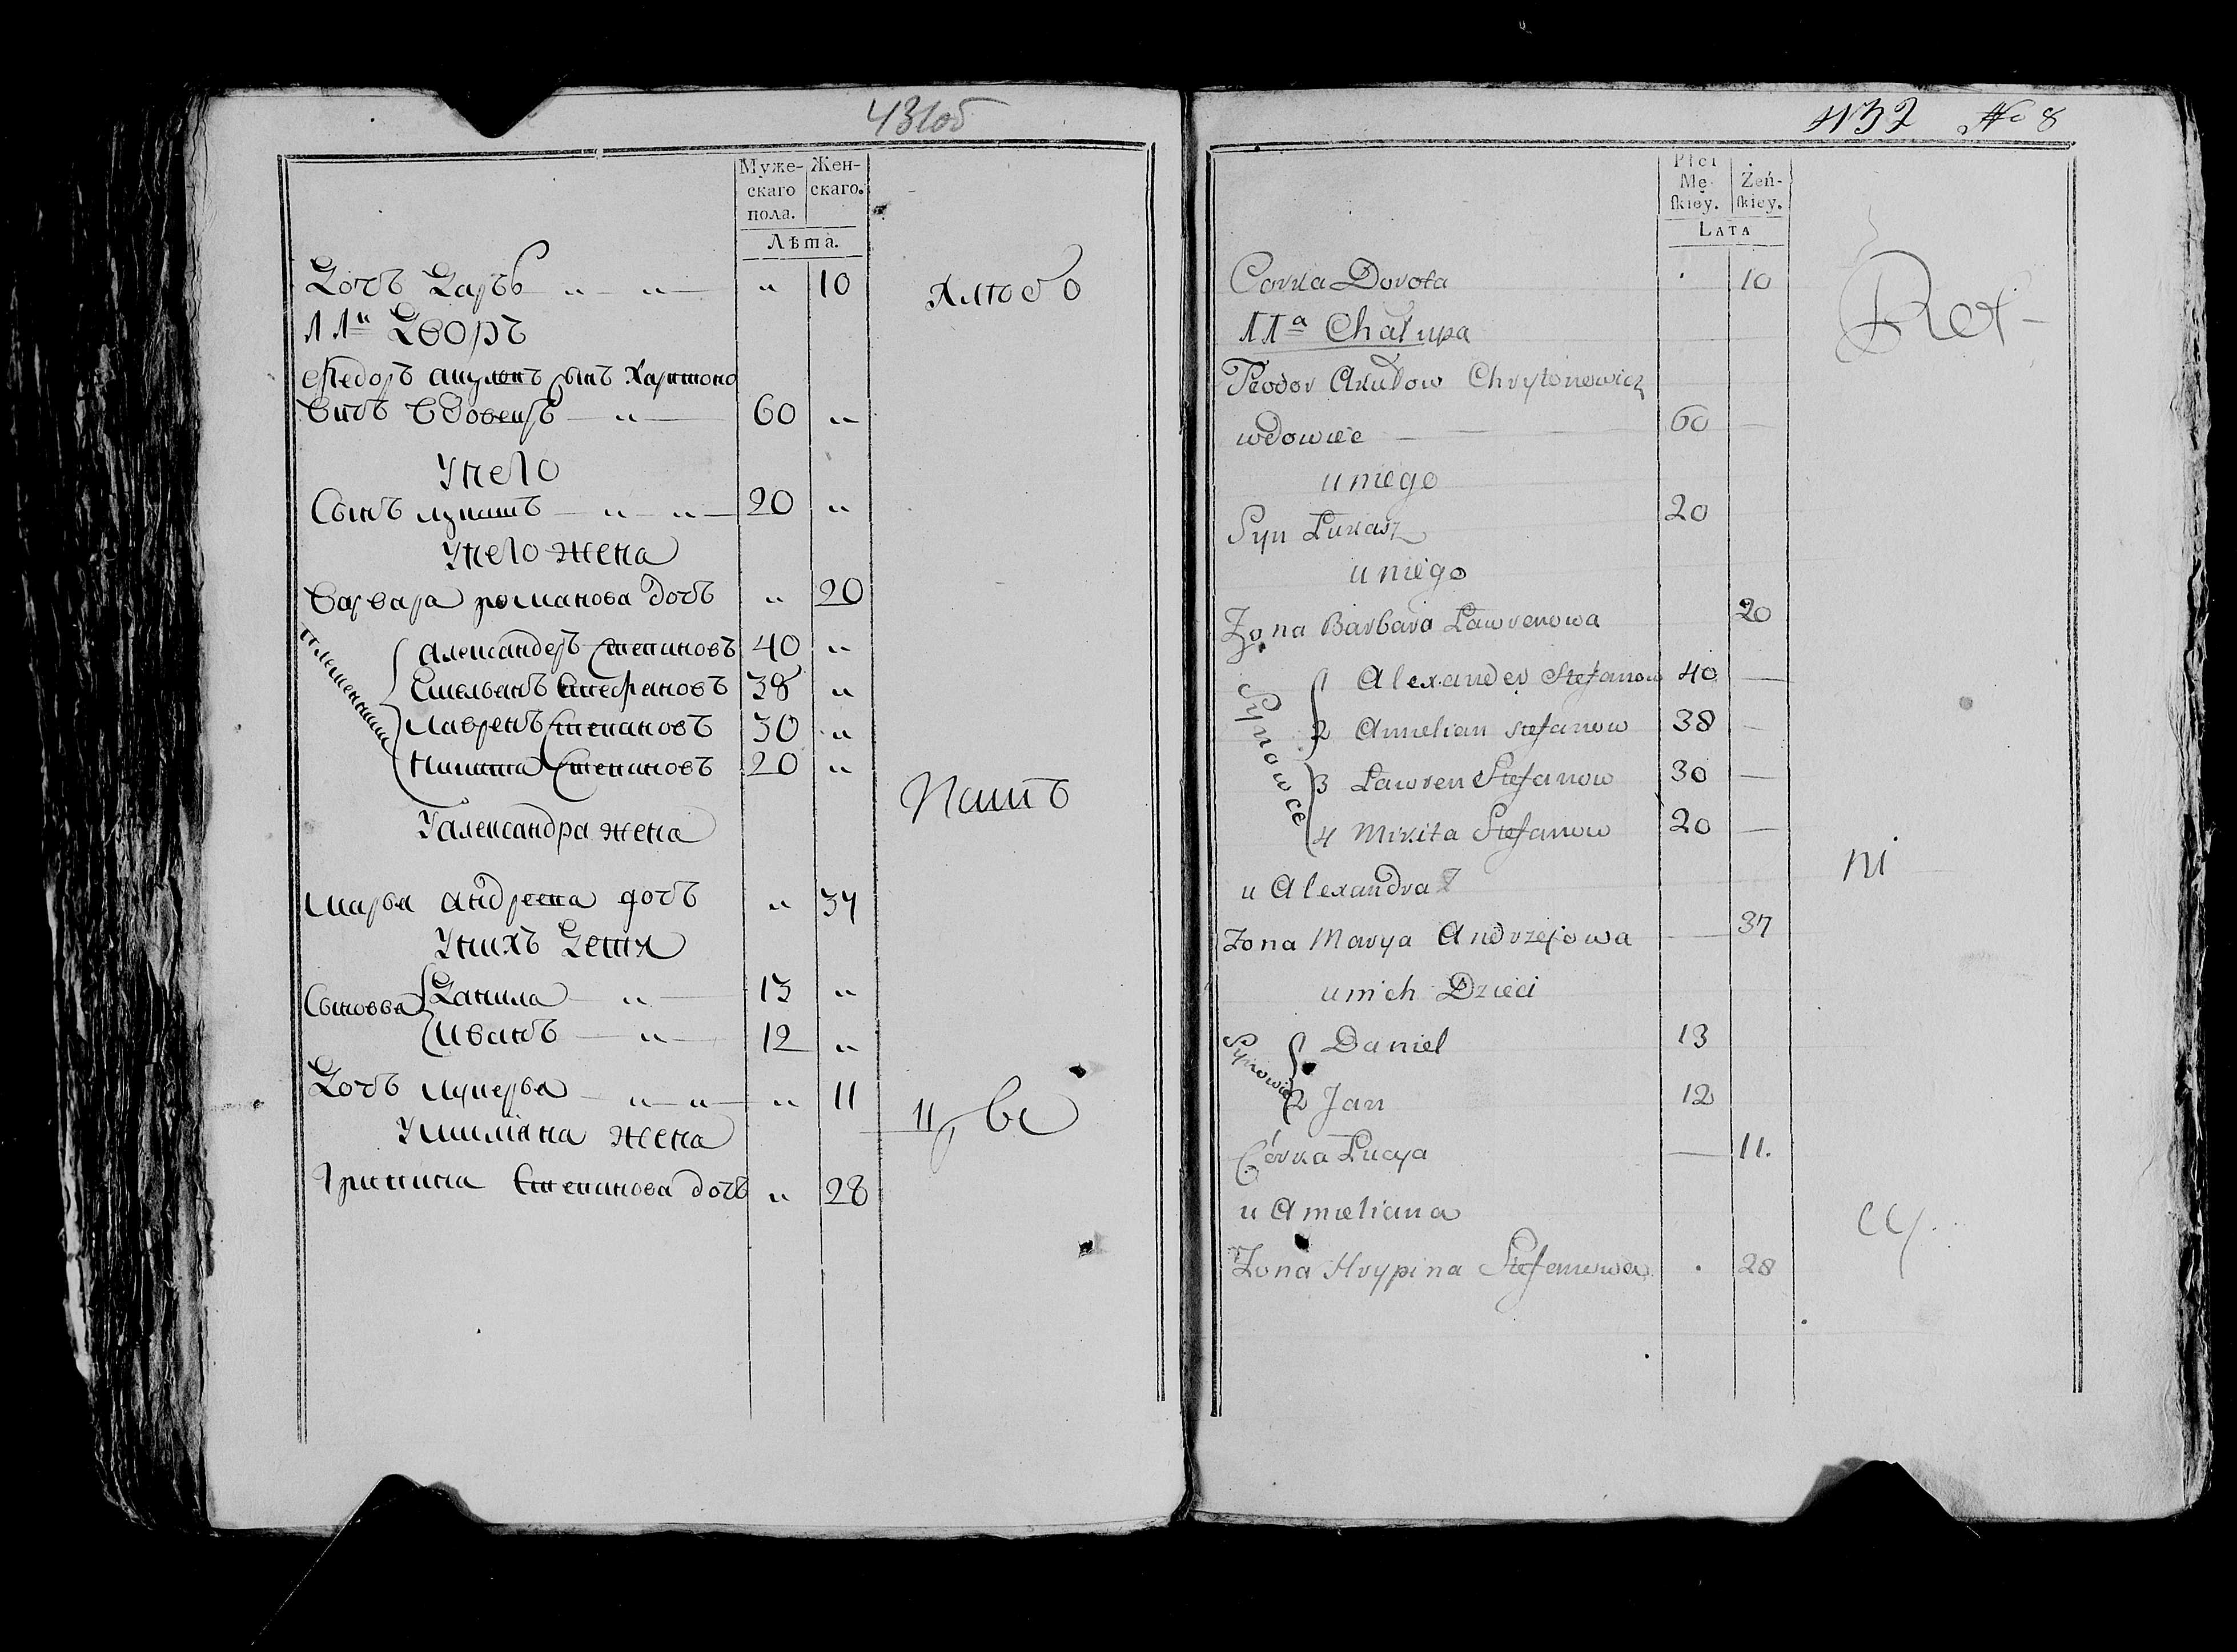 431об
Муже-
скаго
пола.
Жен-
скаго.
Лѣта.
Дочь Дарья " " " 10
11й Дворъ
Федоръ Акуловъ сынъ Харитоно
вичъ вдовецъ " 60 "
У него
Сынъ Лукашъ " " 20 "
У него жена
Варвара романова дочь " 20
племенники
Александеръ Степановъ 40 "
Емельянъ Стефановъ 38 "
Лавренъ Степановъ 30 "
Никита Степановъ 20 "
У александра жена
Марья андреева дочь " 37
У нихъ Дети
Сыновья Данила " 13 "
Иванъ " 12 "
Дочь Лукерья " " " 11
У Имиляна жена
Грипина Степанова дочь " 28
432 No 8
Płci
Mę-
skiey.
Żeń-
skiey.
LATA
Corka Dorota 10
11a Chałupa
Teodor Akułow Chrytonowicz
wdowiec 60
u niego
Syn Łukasz 20
u niego
Żona Barbara Ławrenowa 20
Synowce
1 Alexander Stefanow 40
2 Amelian Stefanow 38
3 Ławren Stefanow 30
4 Mikita Stefanow 20
u Alexandra
Żona Marya Andrzejowa 37
u nich Dzieci
Synowie
Daniel 13
2 Jan 12
Córka Łucya 11.
u Ameliana
Żona Hrypina Stefanowa 28